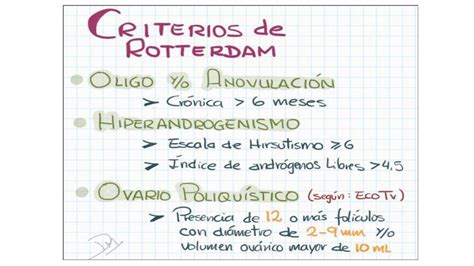 CRITERIOS de
ROTTERDAM
OLIGO Y/O ANOVULACIÓN
➤ Crónica > 6 meses
HIPERANDROGENISMO
➤ Escala de Hirsutismo ≥ 6
➤ Índice de andrógenos Libres > 4,5
OVARIO POLIQUÍSTICO (según: EcoTv)
➤ Presencia de 12 o más folículos
con diámetro de 2-9 mm Y/o
volumen ovárico mayor de 10 mL